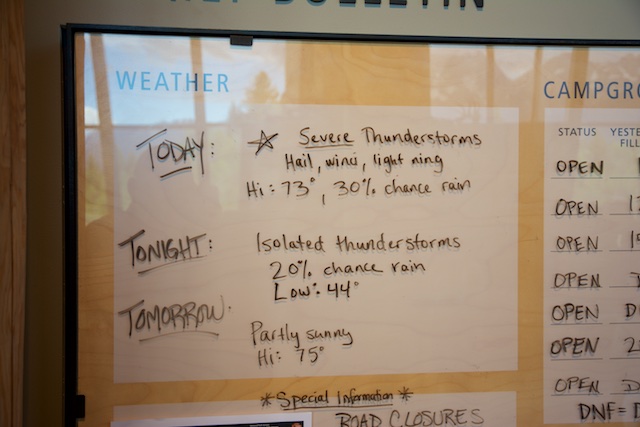 BULLETIN
WEATHER
TODAY: ☆ Severe Thunderstorms
Hail, wind, lightning
Hi: 73°, 30% chance rain
TONIGHT: Isolated thunderstorms
20% chance rain
Low: 44°
TOMORROW: Partly sunny
Hi: 75°
*Special Information*
ROAD CLOSURES
STATUS
OPEN
OPEN
OPEN
OPEN
OPEN
OPEN
OPEN
DNF=